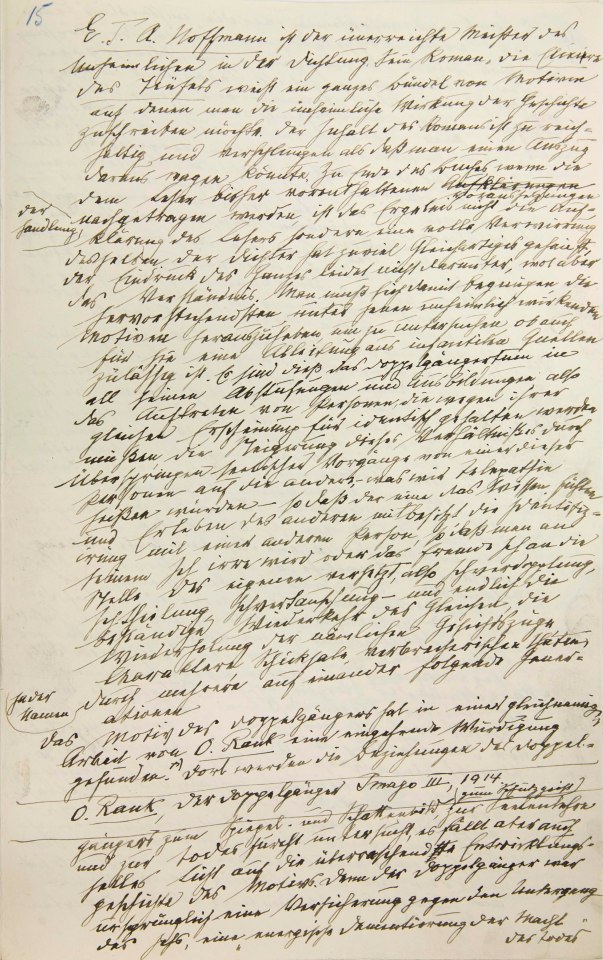 15
E. T. A. Hoffmann ist der unerreichte Meister des
Unheimlichen in der Dichtung. Sein Roman, die Elixire
des Teufels weist ein ganzes Bündel von Motiven
auf denen man die unheimliche Wirkung der Geschichte
zuschreiben möchte. Der Inhalt des Romans ist zu reich-
haltig und verschlungen als daß man einen Auszug
daraus wagen könnte. Zu Ende des Buches wenn die
dem Leser bisher vorenthaltenen Aufklärungen Voraussetzungen
der Handlung
nachgetragen werden, ist das Ergebnis nicht die Auf-
klärung des Lesers sondern eine volle Verwirrung
desselben. Der Dichter hat zuviel Gleichartiges gehäuft
der Eindruck des Ganzen leidet nicht darunter, wol aber
das Verständnis. Man muß sich damit begnügen die
hervorstechendsten unter jenen unheimlich wirkenden
Motiven herauszuheben um zu untersuchen ob auch
für sie eine Ableitung aus infantilen Quellen
zulässig ist. Es sind dieß das Doppelgängertum in
all seinen Abstufungen und Ausbildungen also
das Auftreten von Personen, die wegen ihrer
gleichen Erscheinung für identisch gehalten werden
müßen die Steigerung dieses Verhältnißes durch
Überspringen seelischer Vorgänge von einer dieser
Personen auf die andere – was wir Telepathie
heißen würden – so daß der eine das Wissen Fühlen
und Erleben des anderen mitbesitzt die Identifiz-
irung mit einer anderen Person so daß man an
seinem Ich irre wird oder das fremde Ich an die
Stelle des eigenen versetzt also Ichverdopplung,
Ichtheilung Ichvertauschung – und endlich die
beständige Wiederkehr des Gleichen, die
Wiederholung der nämlichen Gesichtszüge
Charaktere Schicksale verbrecherischen Thaten
ja der Namen
durch mehrere auf einander folgende Gener-
ationen
Das Motiv des Doppelgängers hat in einer gleichnamigen
Arbeit von O. Rank eine eingehende Würdigung
gefunden. Dort werden die Beziehungen des Doppel-
O. Rank, Der Doppelgänger Imago III, 1914.
gängers zum Spiegel- und Schattenbild zum Schutzgeist, zur Seelenlehre
und zur Todesfurcht untersucht, es fällt aber auch
helles Licht auf die überraschende Entwicklungs-
geschichte des Motivs. Denn der Doppelgänger war
ursprünglich eine Versicherung gegen den Untergang
des Ichs, eine „energische Dementirung der Macht
des Todes